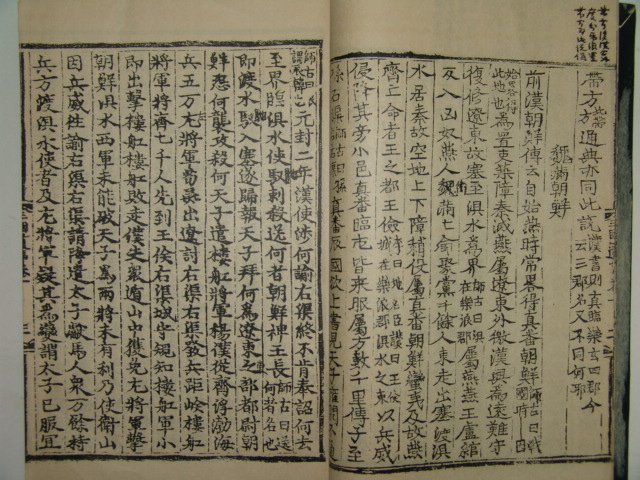 帶方 此帶方 通典亦同此說 漢書則真臨樂玄四郡今云三郡名又不同何耶
魏滿朝鮮
前漢朝鮮傳云自始燕時常畧得真番朝鮮 師古曰戰國時
始畧得此地也 為置吏築障秦滅燕屬遼東外徼漢興為遠難守
復修遼東故塞至浿水為界 師古曰浿在樂浪郡 屬燕燕王盧綰
反入凶奴燕人魏滿亡命聚黨千餘人東走出塞渡浿
水居秦故空地上下障稍役屬真番朝鮮蠻夷及故燕
齊亡命者王之都王儉 以兵威
侵降其旁小邑真番臨屯皆來服屬方數千里傳子至
孫右渠 真番辰國欲上書見天子
師古曰 謂辰韓也 元封二年漢使涉何諭右渠終不肯奉詔何去
至界臨浿水使馭刺殺送何者朝鮮裨王長 師古曰送何者名也
即渡水馭入塞遂歸報天子拜何為遼東之部都尉朝
鮮怨何襲攻殺何天子遣樓舡將軍楊僕從齊浮渤海
兵五万左將軍荀彘出遼討右渠右渠發兵距嶮樓舡
將軍將齊七千人先到王儉右渠城守規知樓舡軍小
即出擊樓舡樓舡敗走僕失衆遁山中獲免左將軍擊
朝鮮浿水西軍未能破天子為兩將未有利乃使衛山
因兵威徃諭右渠右渠請降遣太子獻馬人衆万餘持
兵方渡浿水使者及左將軍疑其為變謂太子已服宜